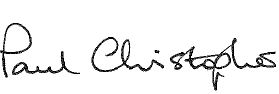 Paul Christopher